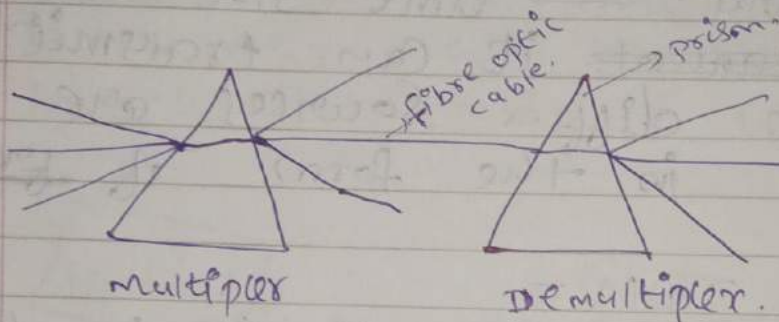 fibre optic
cable.
prism
Multipler
Demultiplex.